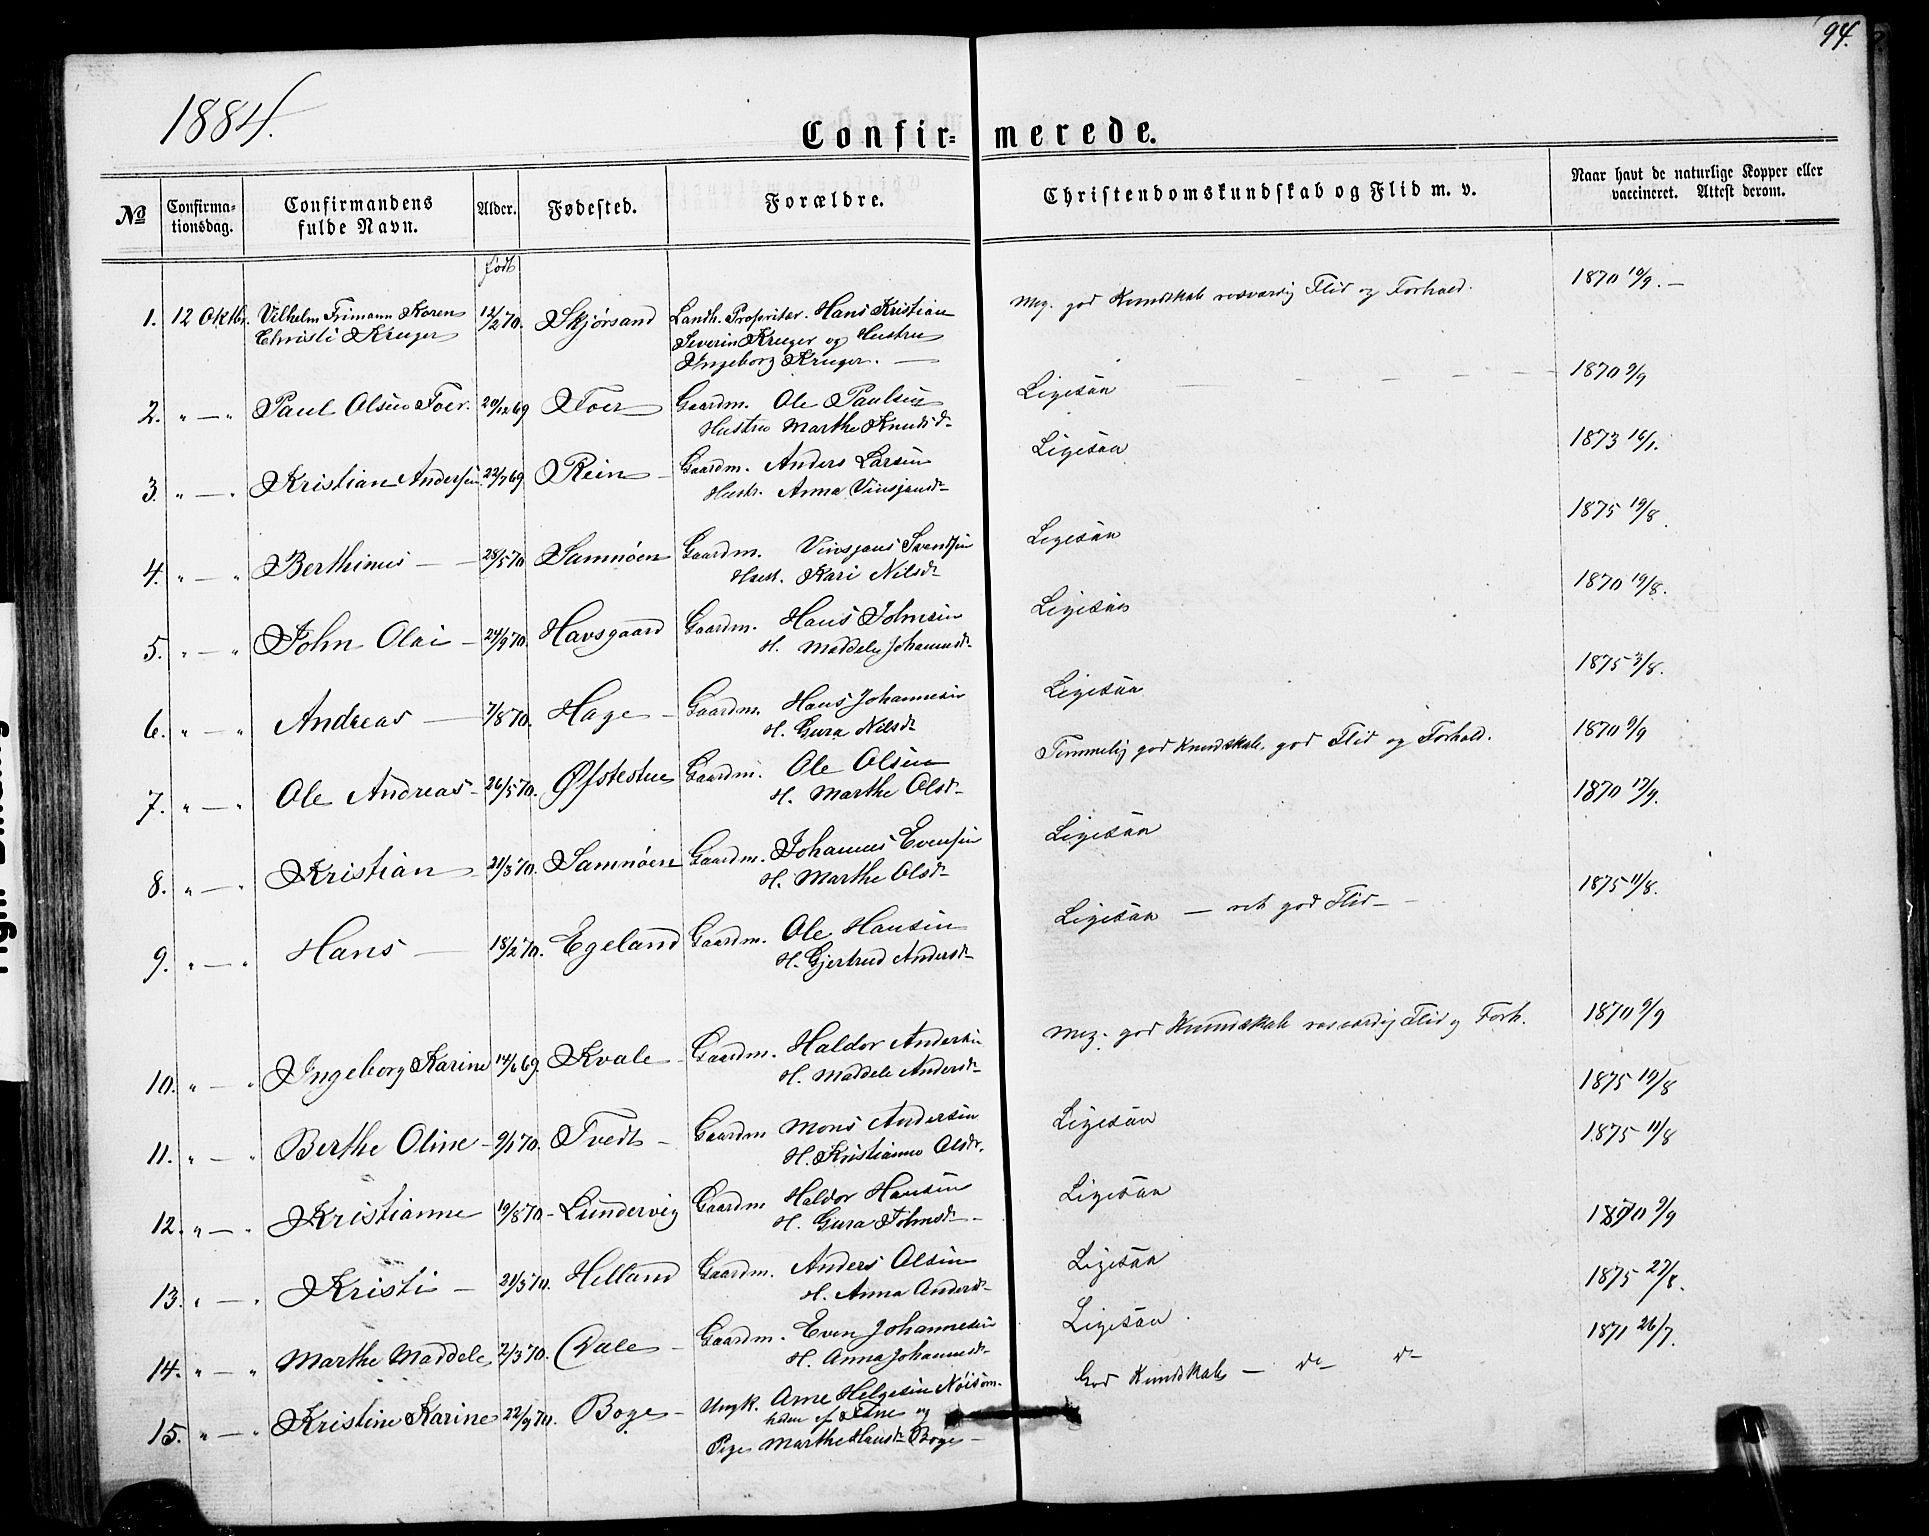 94.
1884.
Confirmerede.
No
Confirmationsdag.
Confirmandens fulde Navn.
Alder.
Fødested.
Forældre.
Christendomskundskab og Flid m. v.
Naar havt de naturlige Kopper eller vaccineret. Attest derom.
født
1. 12 Oktbr. Vilhelm Frimann Koren 12/2 70. Skjørsand Landh. Propritær. Hans Kristian Meg. god Kundskab rosværdig Flid og Forhold. 1870 10/9. —
Christi Kruger Severin Kruger og Hustru
Ingeborg Kruger. —
2. " — " Paul Olsen Foer. 20/12 69 Foer Gaardm. Ole Paulsen Ligesaa — — — — 1870 9/9
Hustru Marthe Knudsd-
3. " — " Kristian Andersen 22/7 69 Rein — Gaardm. Anders Larsen Ligesaa 1873 16/1.
Hustr. Anna Vinsjansd-
4. " — " Berthinus — — 28/5 70 Samnøen Gaardm. Vinsjans Svendsen Ligesaa 1875 19/8.
Hust. Kari Nilsd-
5. " — " John Olai — 24/9 70. Havsgaard Gaardm. Hans Johnsen Ligesaa 1870 19/8.
H. Maddele Johannesd-
6. " — " Andreas — 7/8 70. Hage — Gaardm. Hans Johannesen Ligesaa 1875 3/8.
H. Gura Nilsd-
7. " — " Ole Andreas — 26/5 70. Øfstestue Gaardm. Ole Olsen Temmelig god Kundskab. god Flid og Forhold. 1870 9/9
H. Marthe Olsd-
8. " — " Kristian — 21/3 70. Samnøen Gaardm. Johannes Evensen Ligesaa 1870 13/9.
H. Marthe Olsd-
9. " — " Hans — 18/2 70. Egeland Gaardm. Ole Hansen Ligesaa — ret god Flid — 1875 11/8.
H. Gjertrud Andersd-
10. " — " Ingeborg Karine 14/6 69. Kvale — Gaardm. Haldor Andersen Meg. god Kundskab rosværdig Flid og Forh. 1870 9/9
H. Maddele Andersd-
11. " — " Berthe Oline — 9/1 70. Tvedt — Gaardm Mons Andersen Ligesaa 1875 19/8
H. Kristianne Olsdr.
12. " — " Kristianne 19/8 70 — Lundervig Gaardm Haldor Hansen Ligesaa 1875 11/8
H. Gura Johnsd- —
13. " — " Kristi — 21/3 70. Helland Gaardm. Anders Olsen Ligesaa 1870 9/9
H. Anna Andersd-
14. " — " Marthe Maddele 2/3 70. Dale — Gaardm. Even Johannesen Ligesaa 1875 27/8.
H. Anna Johannesd-
15. " — " Kristine Karine 22/9 70. Boge — Ungk. Arne Helgesen Nøisom- God Kundskab — do do 1871 26/7.
heden af Etne og
Pige Marthe Hansd- Boge —